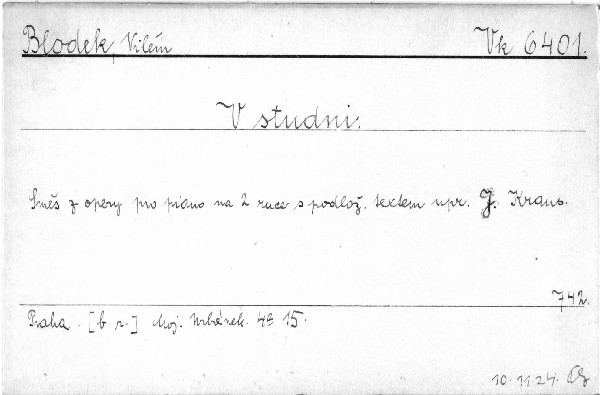 Blodek, Vilém Vk 6401.
V studni.
Směs z opery pro piano na 2 ruce s podlož. textem upr. J. Kraus.
742.
Praha. [b r.] Moj. Urbánek. 4° 15.
10.11.24.